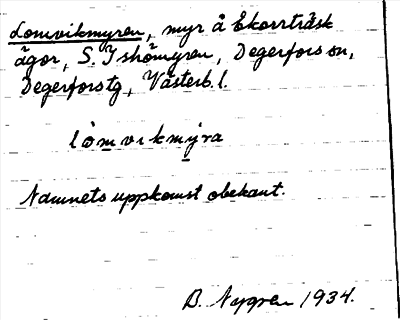 Lomvikmyren, myr å Ekorrträsk
ägor, S. Ishömyren, Degerfors sn,
Degerforstg, Västerb. l.
lòmvikmy̆ra
Namnets uppkomst obekant.
B. Nygren 1934.